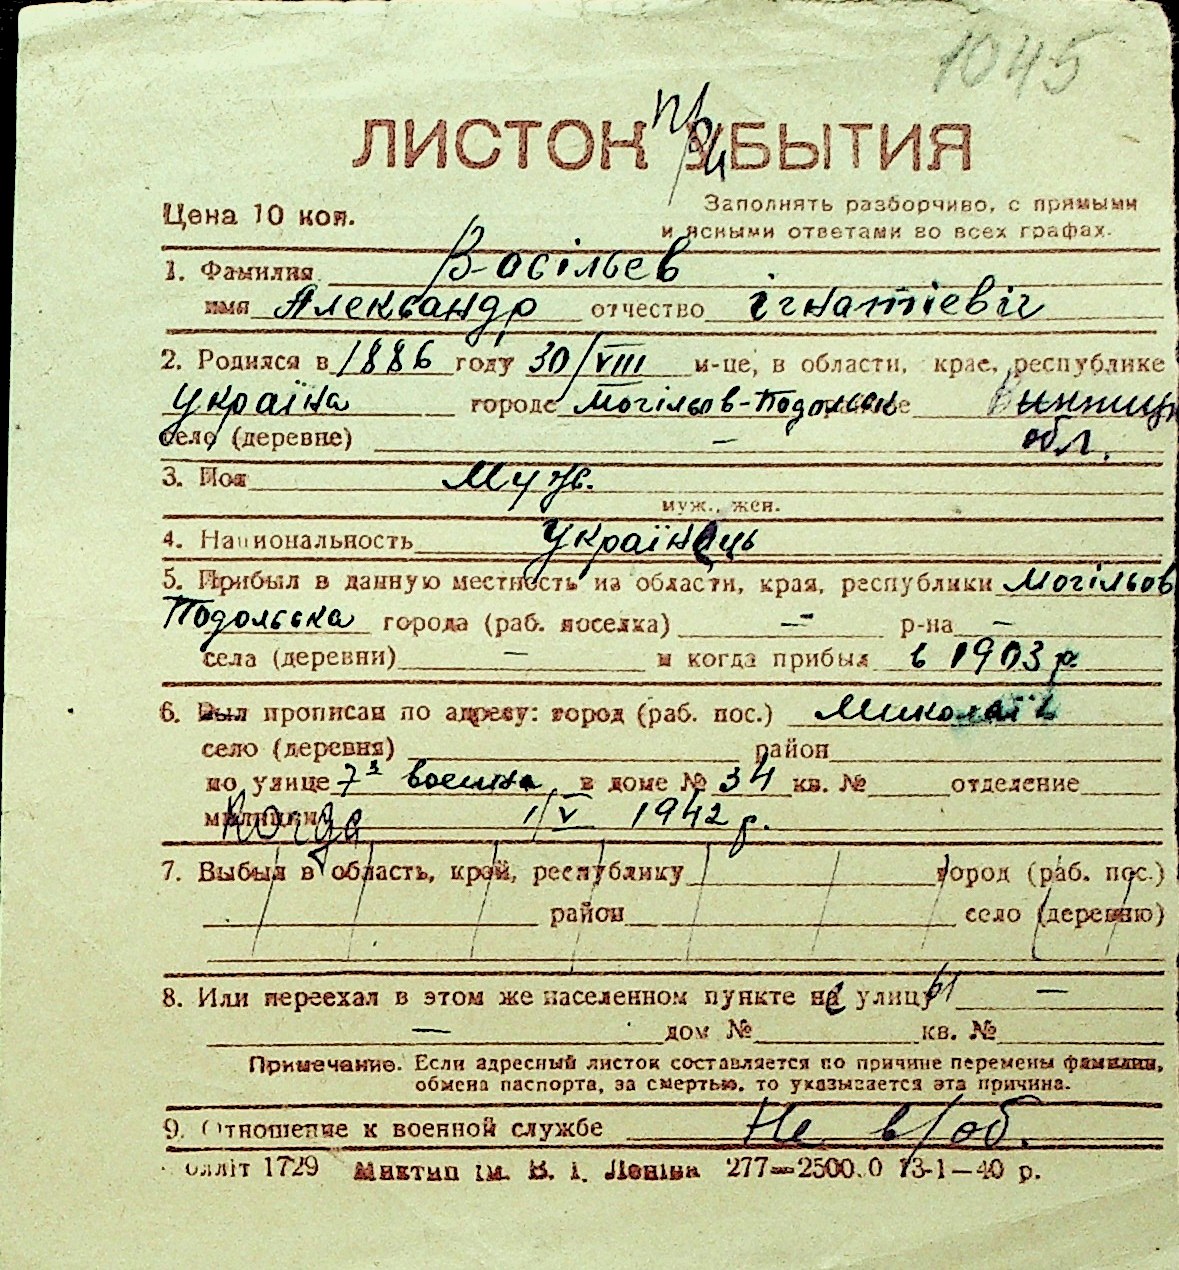 1045
ЛИСТОК при УБЫТИЯ
Цена 10 коп.
Заполнять разборчиво, с прямыми
и ясными ответами во всех графах.
1. Фамилия Васільев
имя Александр отчество ігнатіевіч
2. Родился в 1886 году 30/VIII м-це, в области, крае, республике
Україна городе Могільов-Подольськ районе Винниц
село (деревне) — обл.
3. Пол Муж.
муж., жен.
4. Национальность Українець
5. Прибыл в данную местность из области, края, республики Могільов
Подольська города (раб. поселка) — р-на —
села (деревни) — и когда прибыл в 1903 р.
6. Был прописан по адресу: город (раб. пос.) Миколаїв
село (деревня) район
по улице 7ª воєнна в доме № 34 кв. № отделение
милиции Когда 1/V 1942 р.
7. Выбыл в область, край, республику город (раб. пос.)
район село (деревню)
8. Или переехал в этом же населенном пункте на улицу —
— дом № кв. №
Примечание. Если адресный листок составляется по причине перемены фамилии,
обмена паспорта, за смертью, то указывается эта причина.
9. Отношение к военной службе Не в/об.
олліт 1729 Миктип ім. В. І. Леніна 277—2500.0 13-1—40 р.